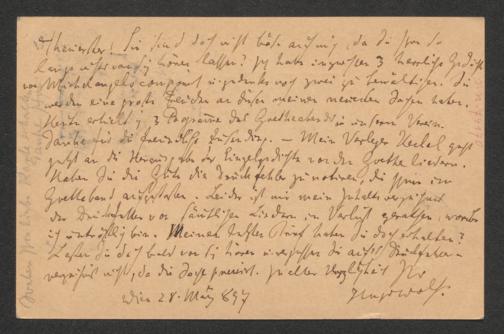 Theuerster! Sie sind doch nicht böse auf mich, da Sie gar so
lange nichts von sich hören lassen? Ich habe inzwischen 3 herrliche Gedichte
von Michelangelo componirt u gedenke noch zwei zu bewältigen. Sie
werden eine große Freude an diesen meinen neuesten Sachen haben.
Heute erhielt ich 3 Programme des Goetheabends in unserem Verein.
Danke für die freundliche Zusendung. — Mein Verleger Heckel geht
jetzt an die Herausgabe der Einzelgedichte von den Goetheliedern.
Haben Sie die Güte die Druckfehler zu notiren, die Ihnen im
Goetheband aufgestoßen. Leider ist mir mein Inhaltsverzeichnis
der Druckfehler von sämtlichen Liedern in Verlust gerathen, worüber
ich untröstlich bin. Meinen letzten Brief haben Sie doch erhalten?
Lassen Sie doch bald von sich hören u vergessen Sie auch das Druckfehler-
verzeichnis nicht, da die Sache pressirt. In alter Herzlichkeit Ihr
Wien 28. März 897
Hugo Wolf.